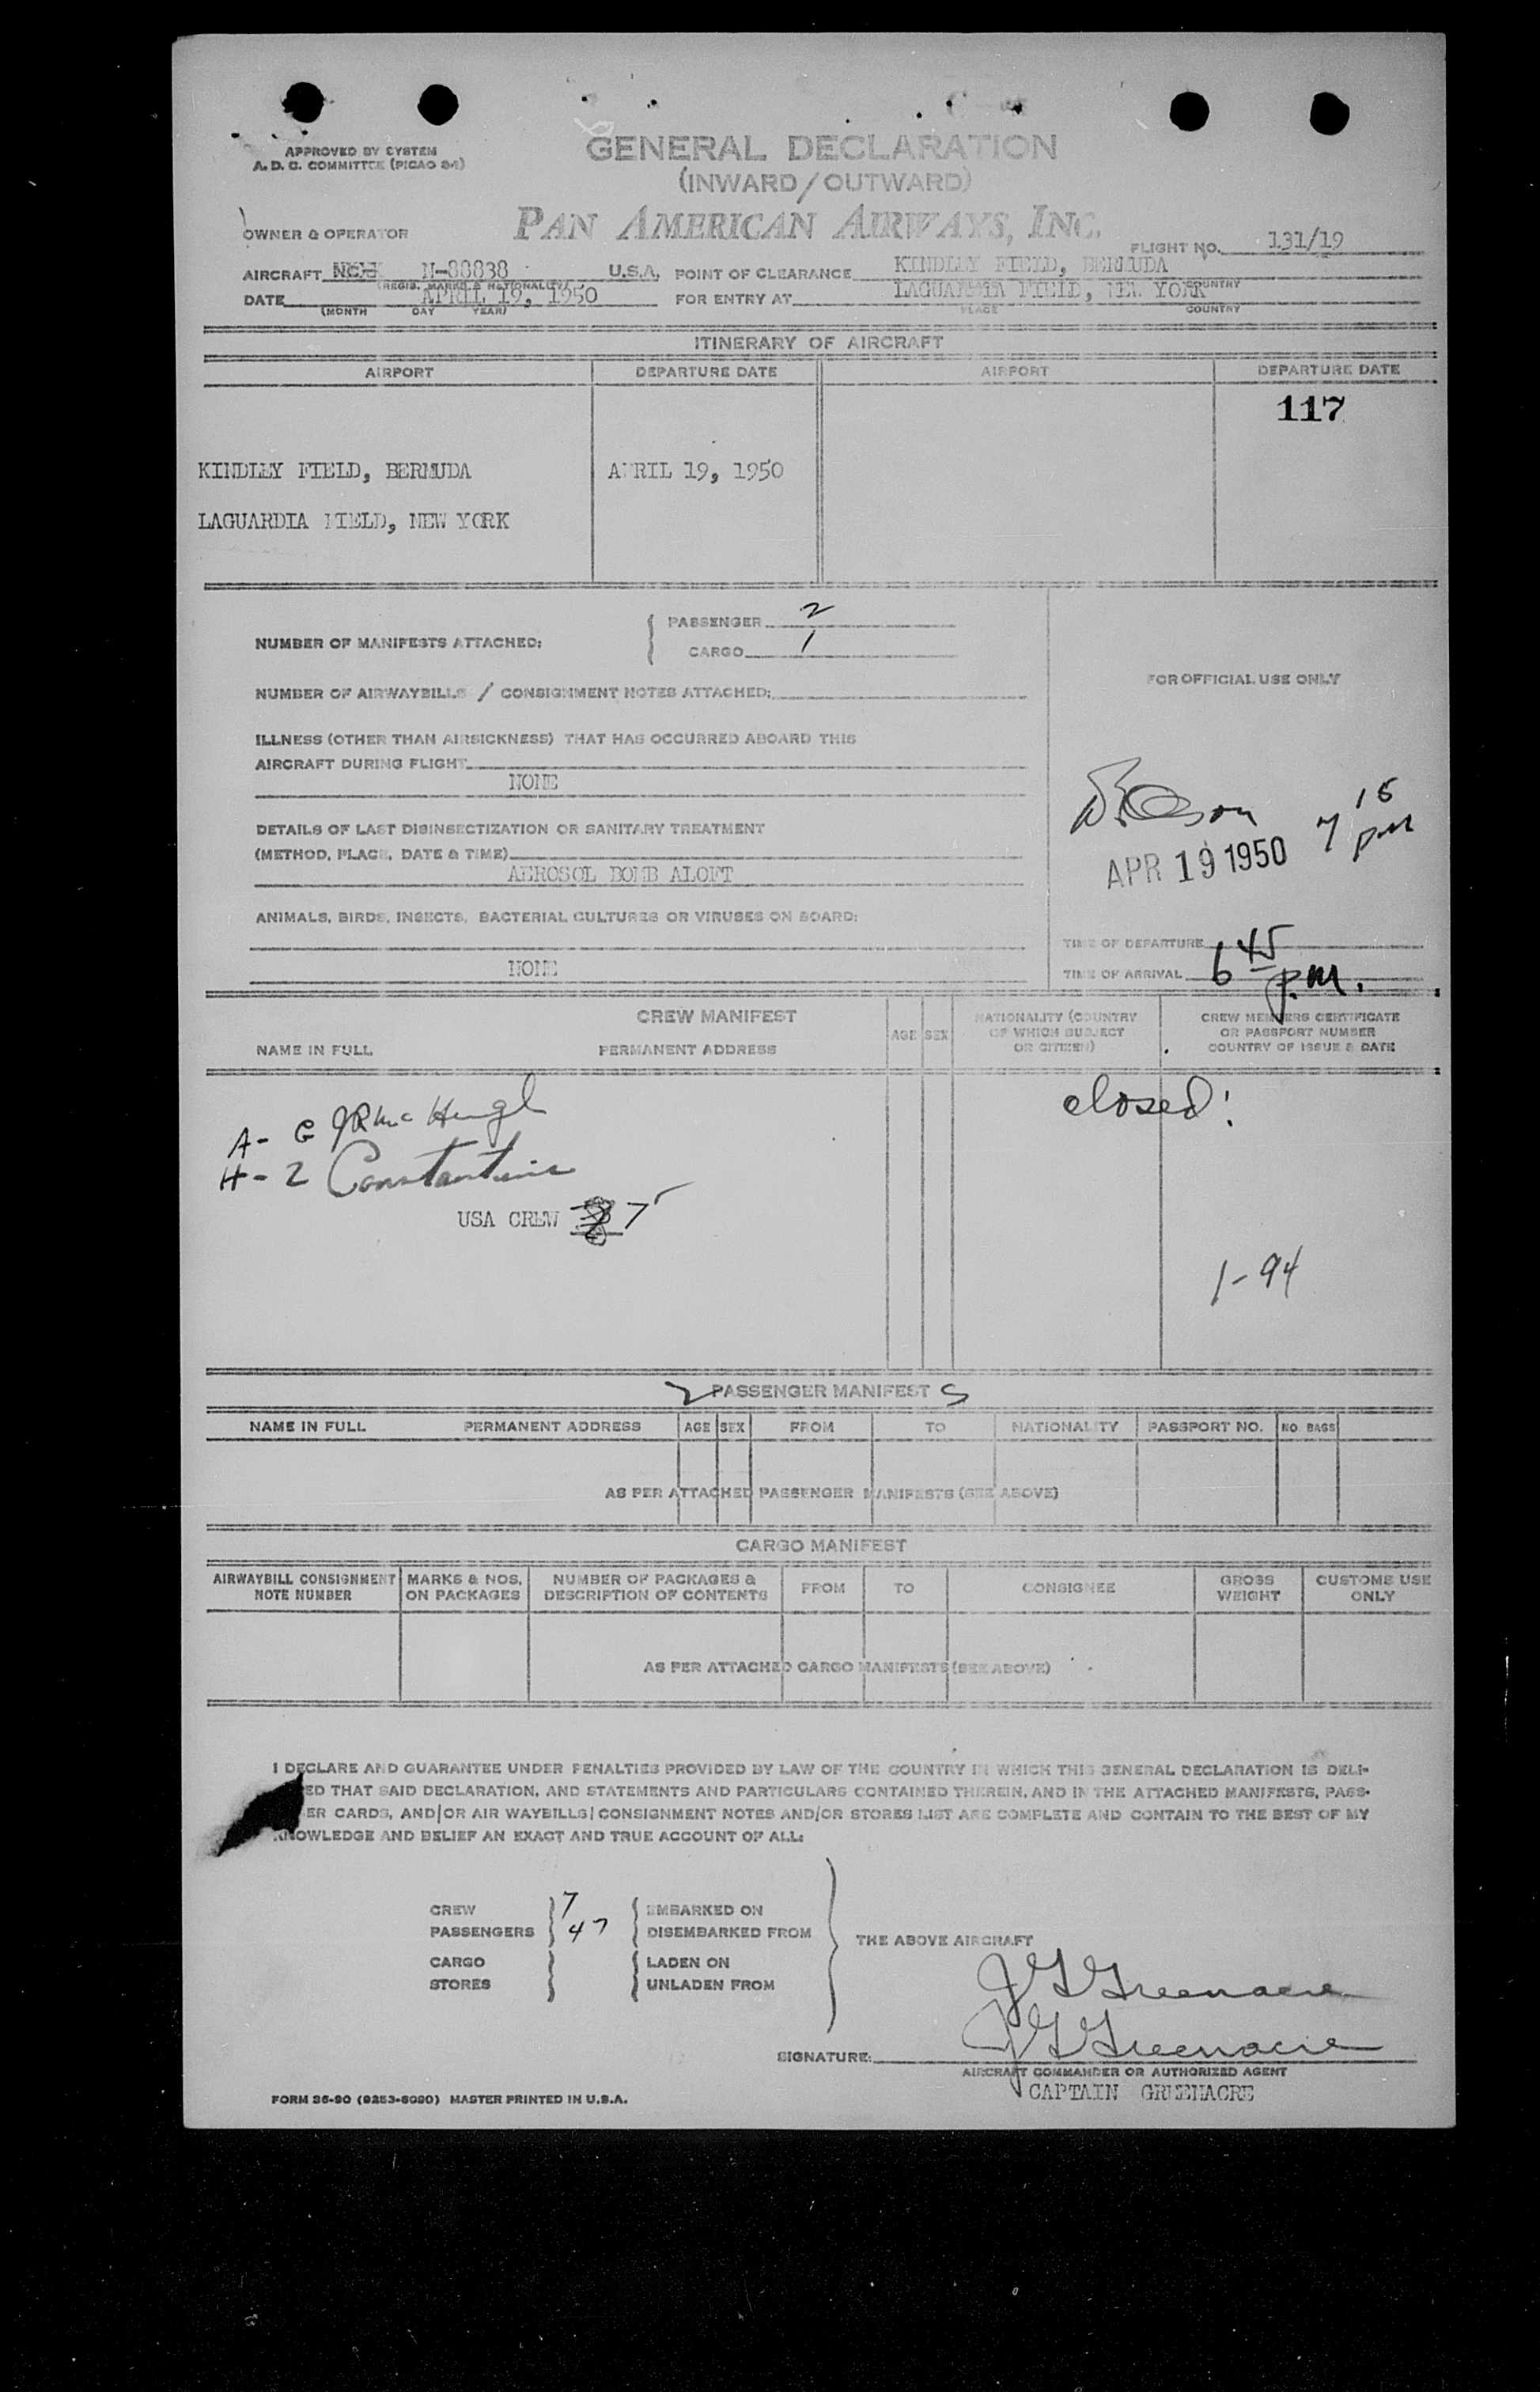 APPROVED BY SYSTEM
A. D. C. COMMITTEE (PICAO 84)
GENERAL DECLARATION
(INWARD/OUTWARD)
OWNER & OPERATOR PAN AMERICAN AIRWAYS, INC. FLIGHT NO. 131/19
AIRCRAFT NC N-88838 U.S.A. POINT OF CLEARANCE KINDLEY FIELD, BERMUDA
(REGIS. MARKS & NATIONALITY) COUNTRY
DATE APRIL 19, 1950 FOR ENTRY AT LAGUARDIA FIELD, NEW YORK
(MONTH DAY YEAR) PLACE COUNTRY
ITINERARY OF AIRCRAFT
AIRPORT DEPARTURE DATE AIRPORT DEPARTURE DATE
117
KINDLEY FIELD, BERMUDA APRIL 19, 1950
LAGUARDIA FIELD, NEW YORK
NUMBER OF MANIFESTS ATTACHED: PASSENGER 2
CARGO 1
NUMBER OF AIRWAYBILLS / CONSIGNMENT NOTES ATTACHED:
FOR OFFICIAL USE ONLY
ILLNESS (OTHER THAN AIRSICKNESS) THAT HAS OCCURRED ABOARD THIS
AIRCRAFT DURING FLIGHT
NONE
DETAILS OF LAST DISINSECTIZATION OR SANITARY TREATMENT
(METHOD, PLACE, DATE & TIME)
AEROSOL BOMB ALOFT
7 15 pm
APR 19 1950
ANIMALS, BIRDS, INSECTS, BACTERIAL CULTURES OR VIRUSES ON BOARD:
NONE
TIME OF DEPARTURE
TIME OF ARRIVAL 6 45 p.m.
CREW MANIFEST
NAME IN FULL PERMANENT ADDRESS AGE SEX NATIONALITY (COUNTRY OF WHICH SUBJECT OR CITIZEN) CREW MEMBERS CERTIFICATE OR PASSPORT NUMBER COUNTRY OF ISSUE & DATE
closed!
A- G JR McHugh
H-2 Constantine
USA CREW 7
1-94
2 PASSENGER MANIFEST S
NAME IN FULL PERMANENT ADDRESS AGE SEX FROM TO NATIONALITY PASSPORT NO. NO. BAGS
AS PER ATTACHED PASSENGER MANIFESTS (SEE ABOVE)
CARGO MANIFEST
AIRWAYBILL CONSIGNMENT NOTE NUMBER MARKS & NOS. ON PACKAGES NUMBER OF PACKAGES & DESCRIPTION OF CONTENTS FROM TO CONSIGNEE GROSS WEIGHT CUSTOMS USE ONLY
AS PER ATTACHED CARGO MANIFESTS (SEE ABOVE)
I DECLARE AND GUARANTEE UNDER PENALTIES PROVIDED BY LAW OF THE COUNTRY IN WHICH THIS GENERAL DECLARATION IS DELI-
ED THAT SAID DECLARATION, AND STATEMENTS AND PARTICULARS CONTAINED THEREIN, AND IN THE ATTACHED MANIFESTS, PASS-
ER CARDS, AND/OR AIR WAYBILLS/CONSIGNMENT NOTES AND/OR STORES LIST ARE COMPLETE AND CONTAIN TO THE BEST OF MY
KNOWLEDGE AND BELIEF AN EXACT AND TRUE ACCOUNT OF ALL:
CREW 7 EMBARKED ON
PASSENGERS 47 DISEMBARKED FROM
THE ABOVE AIRCRAFT
CARGO LADEN ON
STORES UNLADEN FROM
JG Greenacre
SIGNATURE: JG Greenacre
AIRCRAFT COMMANDER OR AUTHORIZED AGENT
CAPTAIN GREENACRE
FORM 36-90 (9253-6090) MASTER PRINTED IN U.S.A.